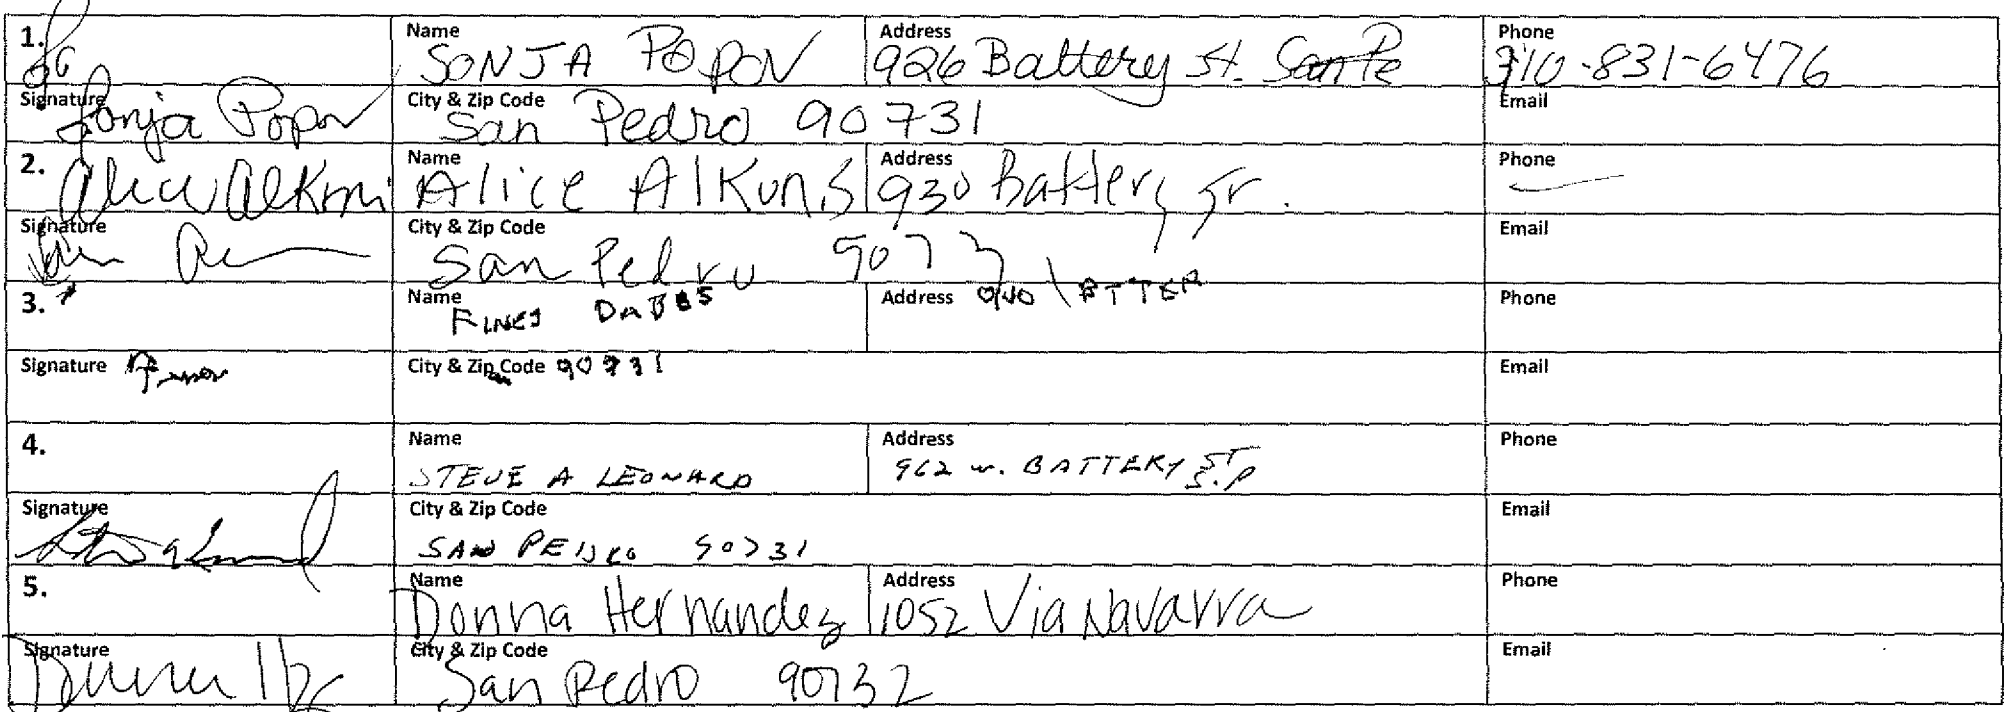 1. Name SONJA POPOV Address 926 Battery St. San Pe Phone 310-831-6476
Signature Sonja Popov City & Zip Code San Pedro 90731 Email
2. Name Alice Alkons Address 930 Battery St. Phone
Signature City & Zip Code San Pedro 9073 Email
3. Name Address Phone
Signature City & Zip Code 90731 Email
4. Name STEVE A LEONARD Address 962 W. BATTERY ST S.P Phone
Signature City & Zip Code SAN PEDRO 90731 Email
5. Name Donna Hernandez Address 1052 Via Navarra Phone
Signature City & Zip Code San Pedro 90732 Email